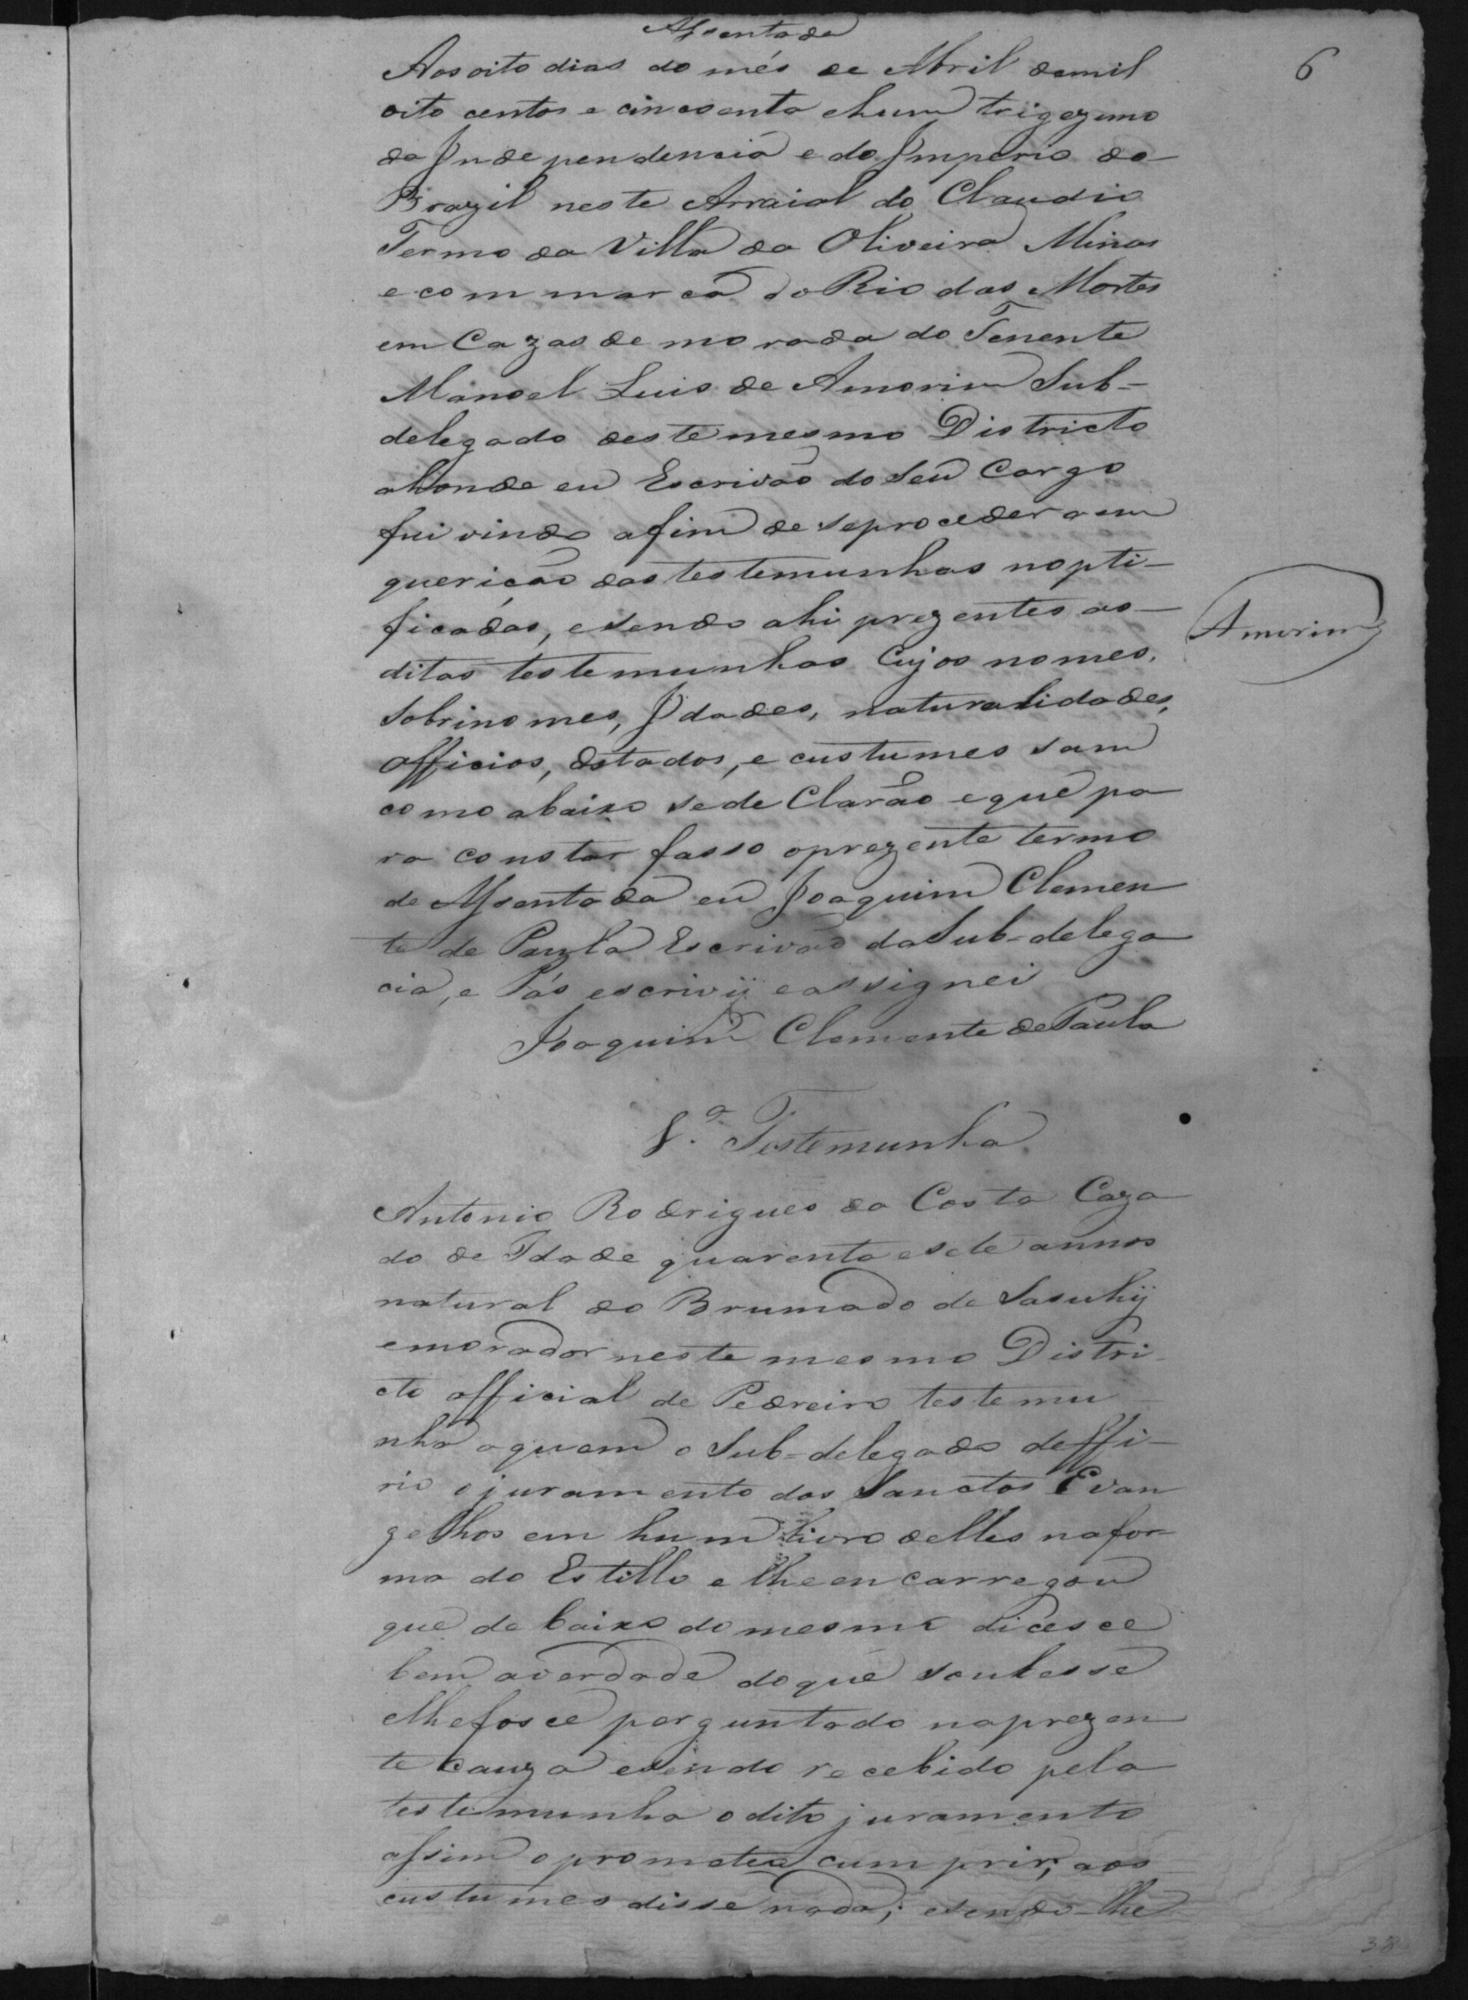 Assentada
6
Aos oito dias do més de Abril demil
oito centos e cincoenta ehum trigezimo
da Independencia e do Imperio do
Brazil neste Arraial do Claudio
Termo da Villa da Oliveira Minas
e commarca do Rio das Mortes
em Cazas de morada do Tenente
Manoel Luis de Amorim Sub-
delegado deste mesmo Districto
ahonde eu Escrivão do Seu Cargo
fui vindo afim de seproceder a em
quericão das testemunhas nopti-
ficadas, esendo ahi prezentes as
ditas testemunhas Cujos nomes,
Sobrinomes, Idades, naturalidades,
officios, Estados, e custumes sam
como abaixo sede Clarão eque pa
ra constar fasso oprezente termo
de Assentada eu Joaquim Clemen
te de Paula Escrivão da Sub-delega
cia, e Pás escrivij eassignei
Joaquim Clemente de Paula
Amorim
1.ª Testemunha
Antonio Rodrigues da Costa Caza
do de Idade quarenta esete annos
natural do Brumado de Sasuhij
emorador neste mesmo Distri
cto official de Pedreiro testemu
nha aquem o Sub-delegado deffi-
rio ojuramento dos Sanctos Evan
gelhos em hum livro delles nafor
ma do Estillo e lheencarregou
que de baixo do mesmo dicesce
bem averdade doque soubesse
elhefosce perguntado naprezen
te Cauza esendo recebido pela
testemunha odito juramento
assim oprometeu cumprir; aos
custumes disse nada; esendo-lhe
38